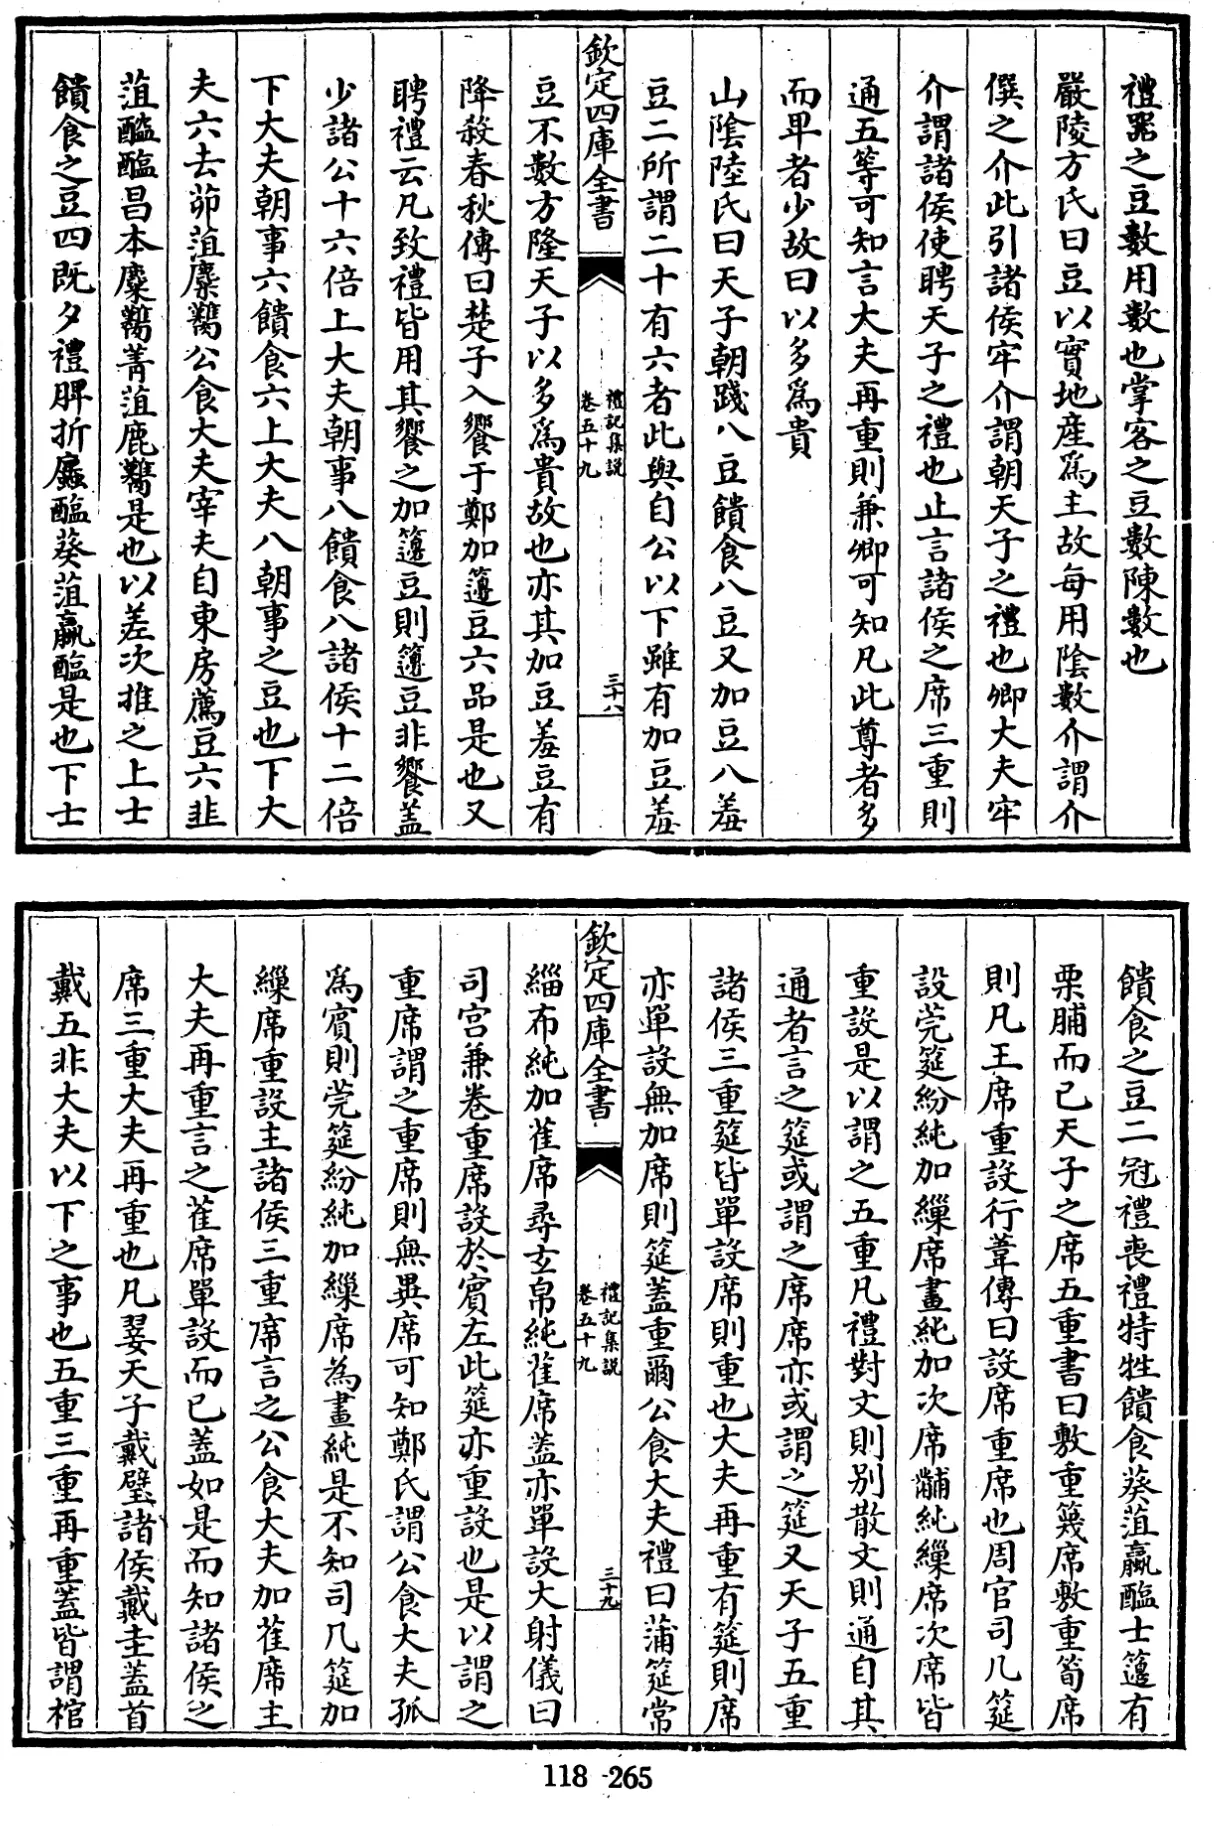 禮器之豆數用數也掌客之豆數陳數也
嚴陵方氏曰豆以實地産為主故每用陰數介謂介
僎之介此引諸侯牢介謂朝天子之禮也卿大夫牢
介謂諸侯使聘天子之禮也止言諸侯之席三重則
通五等可知言大夫再重則兼卿可知凡此尊者多
而卑者少故曰以多為貴
山隂陸氏曰天子朝踐八豆饋食八豆又加豆八羞
豆二所謂二十有六者此與自公以下雖有加豆羞
欽定四庫全書
禮記集説
卷五十九
三十八
豆不數方隆天子以多為貴故也亦其加豆羞豆有
降殺春秋傳曰楚子入饗于鄭加籩豆六品是也又
聘禮云凡致禮皆用其饗之加籩豆則籩豆非饗蓋
少諸公十六倍上大夫朝事八饋食八諸侯十二倍
下大夫朝事六饋食六上大夫八朝事之豆也下大
夫六去茆菹麋臡公食大夫宰夫自東房薦豆六韭
菹醓醢昌本麋臡菁菹鹿臡是也以差次推之上士
饋食之豆四既夕禮脾析蠯醢葵菹蠃醢是也下士
饋食之豆二冠禮喪禮特牲饋食葵菹蠃醢士籩有
栗脯而已天子之席五重書曰敷重篾席敷重筍席
則凡王席重設行葦傳曰設席重席也周官司几筵
設莞筵紛純加繅席畫純加次席黼純繅席次席皆
重設是以謂之五重凡禮對文則别散文則通自其
通者言之筵或謂之席席亦或謂之筵又天子五重
諸侯三重筵皆單設席則重也大夫再重有筵則席
亦單設無加席則筵蓋重爾公食大夫禮曰蒲筵常
欽定四庫全書
禮記集説
卷五十九
三十九
緇布純加萑席尋玄帛純萑席蓋亦單設大射儀曰
司宫兼卷重席設於賓左此筵亦重設也是以謂之
重席謂之重席則無異席可知鄭氏謂公食大夫孤
為賓則莞筵紛純加繅席為畫純是不知司几筵加
繅席重設主諸侯三重席言之公食大夫加萑席主
大夫再重言之萑席單設而已蓋如是而知諸侯之
席三重大夫再重也凡翣天子戴璧諸侯戴圭蓋首
戴五非大夫以下之事也五重三重再重蓋皆謂棺
118-265